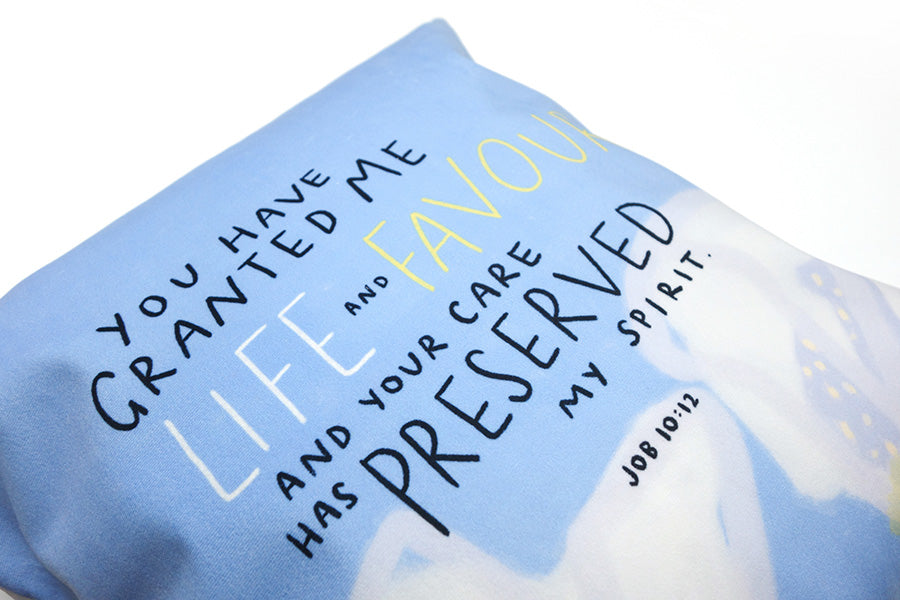 YOU HAVE
GRANTED ME
LIFE AND FAVOUR
AND YOUR CARE
HAS PRESERVED
MY SPIRIT.
JOB 10:12